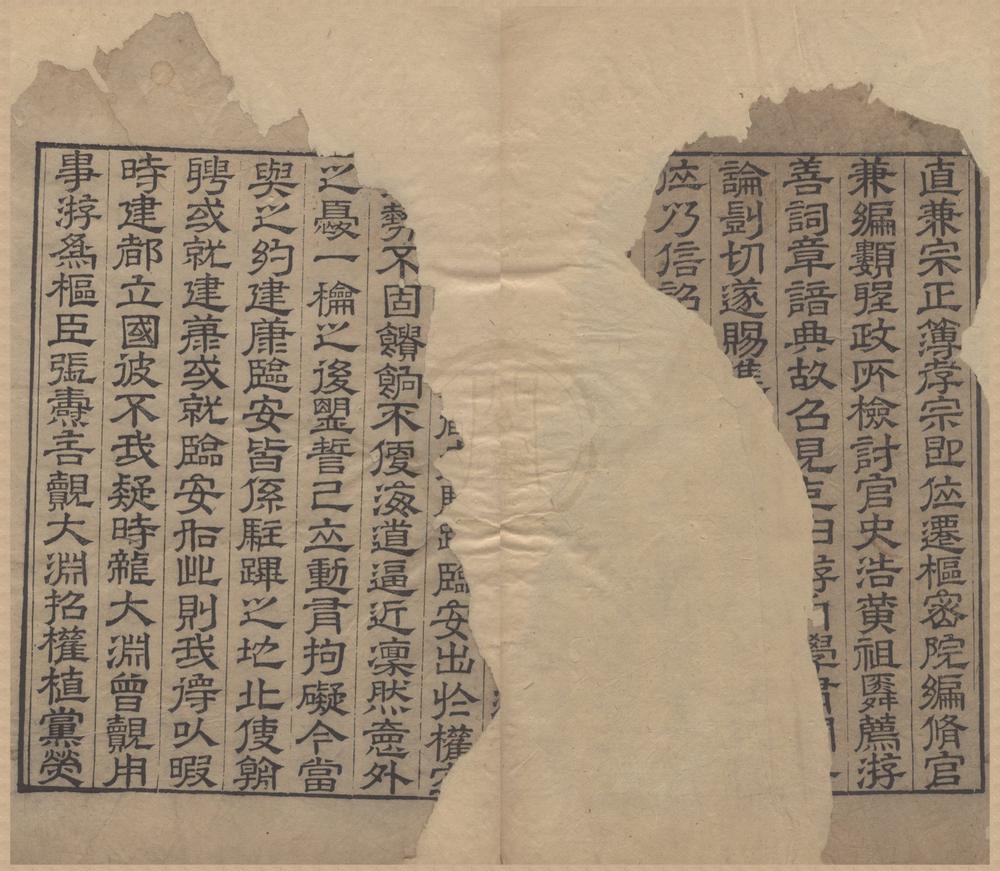 直兼宗正簿孝宗即位遷樞密院編脩官
兼編類聖政所檢討官史浩黃祖舜薦游
善詞章諳典故召見
論剴切遂賜進
位乃信詔
臨安出於權
勢不固饋餉不便海道逼近凜然意外
之憂一和之後盟誓已立動有拘礙今當
與之約建康臨安皆係駐蹕之地北使朝
聘或就建康或就臨安如此則我得以暇
時建都立國彼不我疑時龍大淵曾覿用
事游為樞臣張燾言覿大淵招權植黨熒